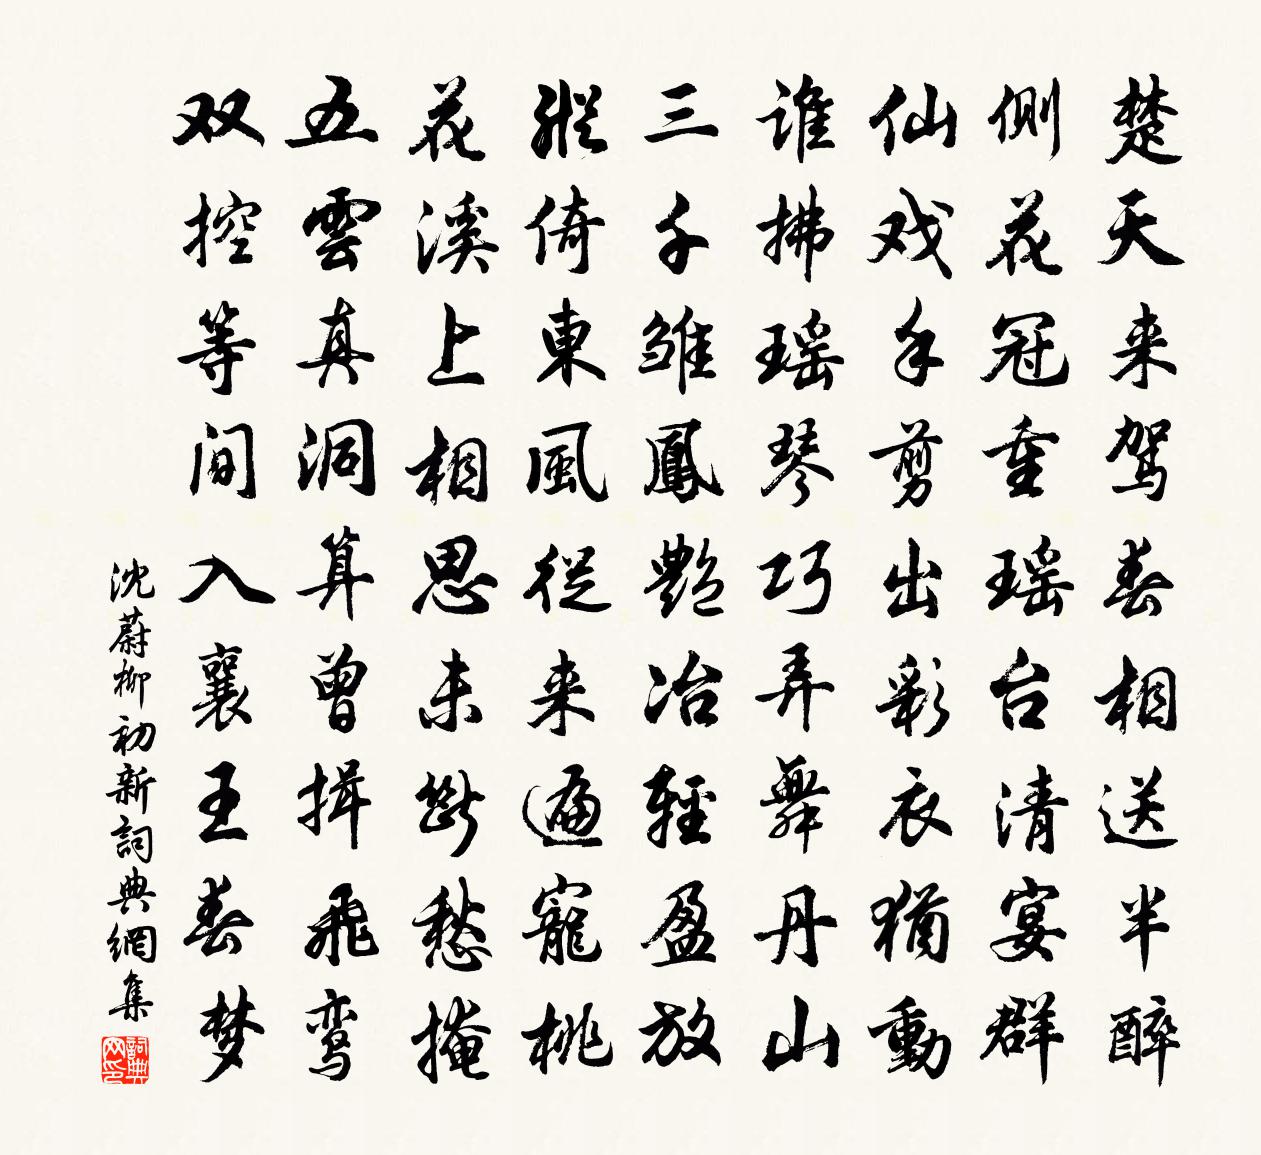 楚天来驾春相送半醉
侧花冠重瑶台清宴群
仙戏手剪出彩衣犹動
谁拂瑶琴巧弄舞丹山
三千雏鳳艷冶輕盈放
縱倚東風從来遍寵桃
花溪上相思未断愁掩
五雲真洞算曾揖飛鸾
双控等间入襄王春梦
沈蔚柳初新詞典網集
詞典网印